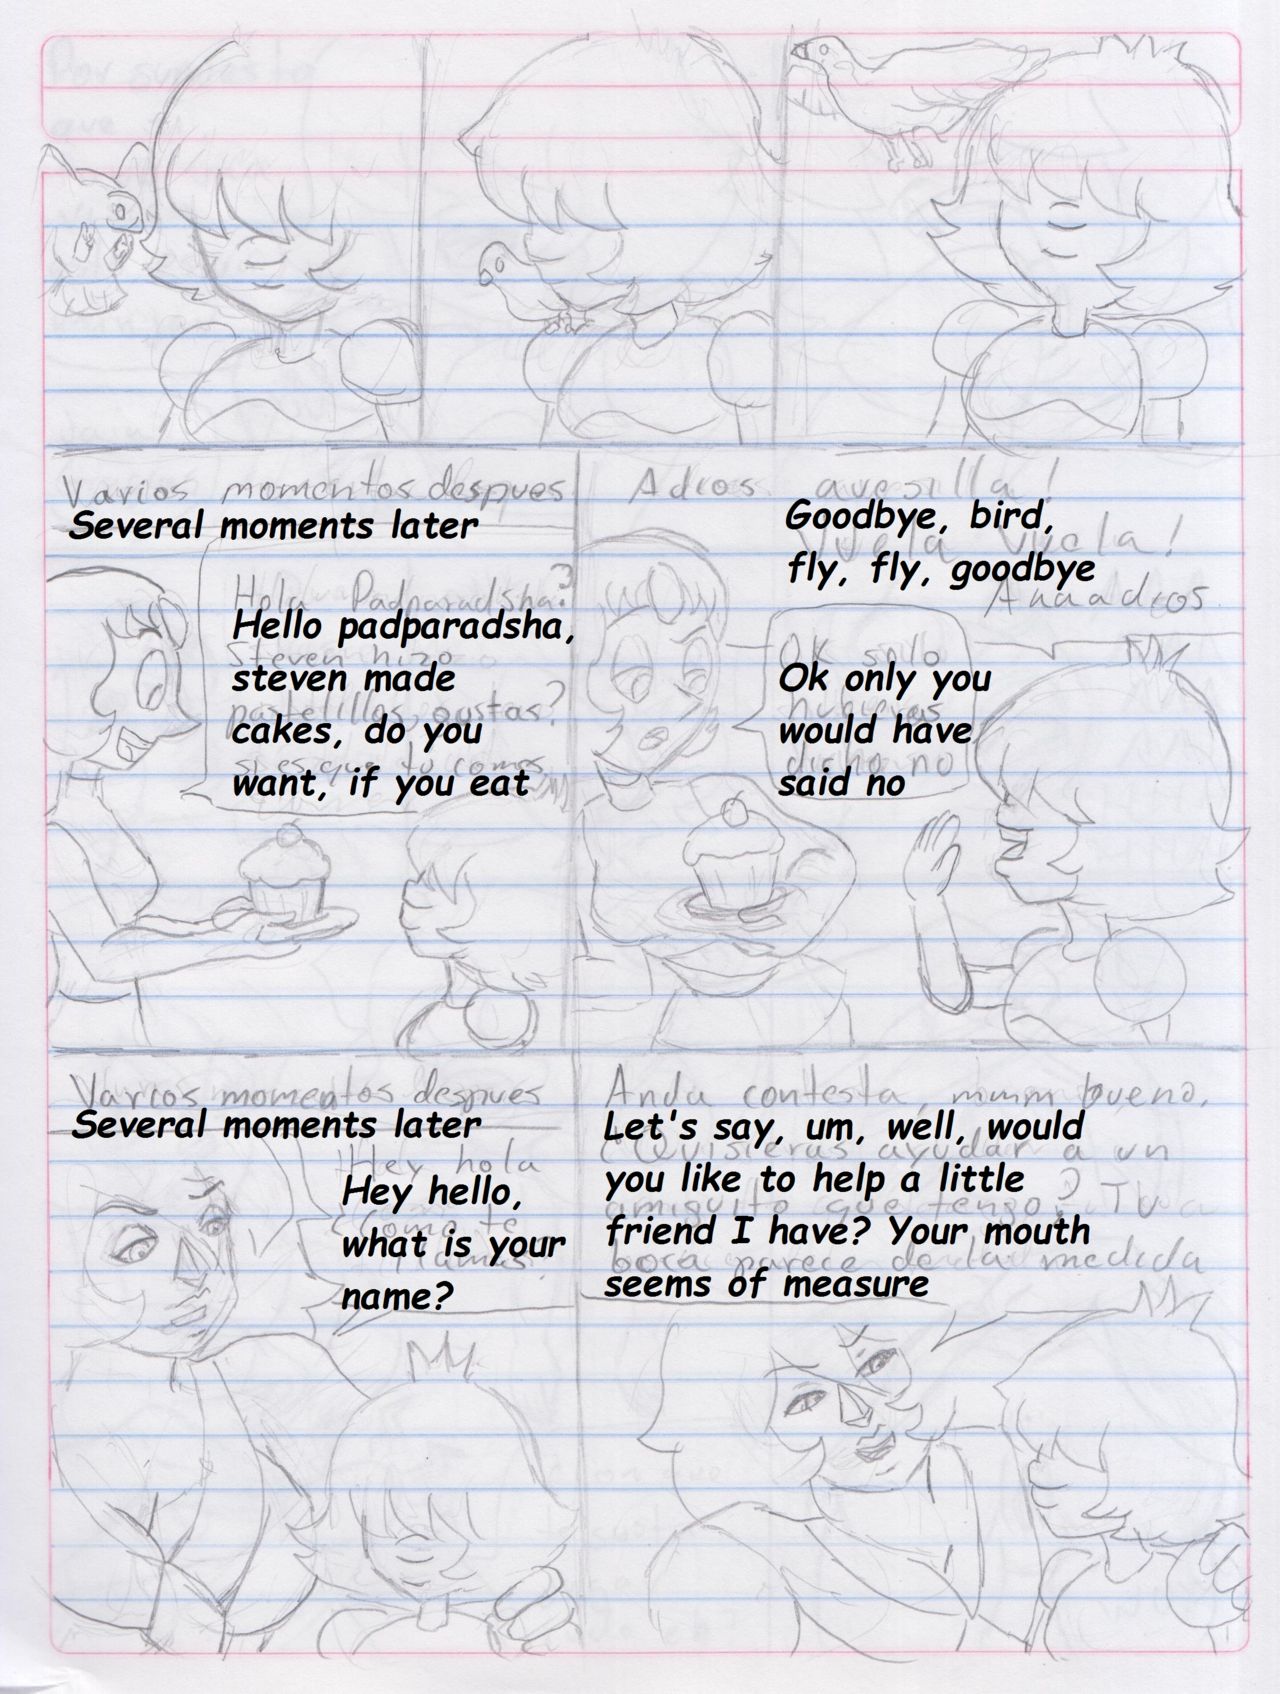 Varios momentos despues
Several moments later
Hola Padparadsha?
Hello padparadsha,
Steven hizo
steven made
pastelillos, gustas?
cakes, do you
si es que tu comes
want, if you eat
Adios avesilla!
Goodbye, bird,
Vuela vuela!
fly, fly, goodbye
Anaadios
OK solo
Ok only you
hubieras
would have
dicho no
said no
Varios momentos despues
Several moments later
Hey hola
Hey hello,
como te
what is your
llamas?
name?
Anda contesta, mmm bueno,
Let's say, um, well, would
Quisieras ayudar a un
you like to help a little
amiguito que tengo? Tu
friend I have? Your mouth
boca parece de la medida
seems of measure